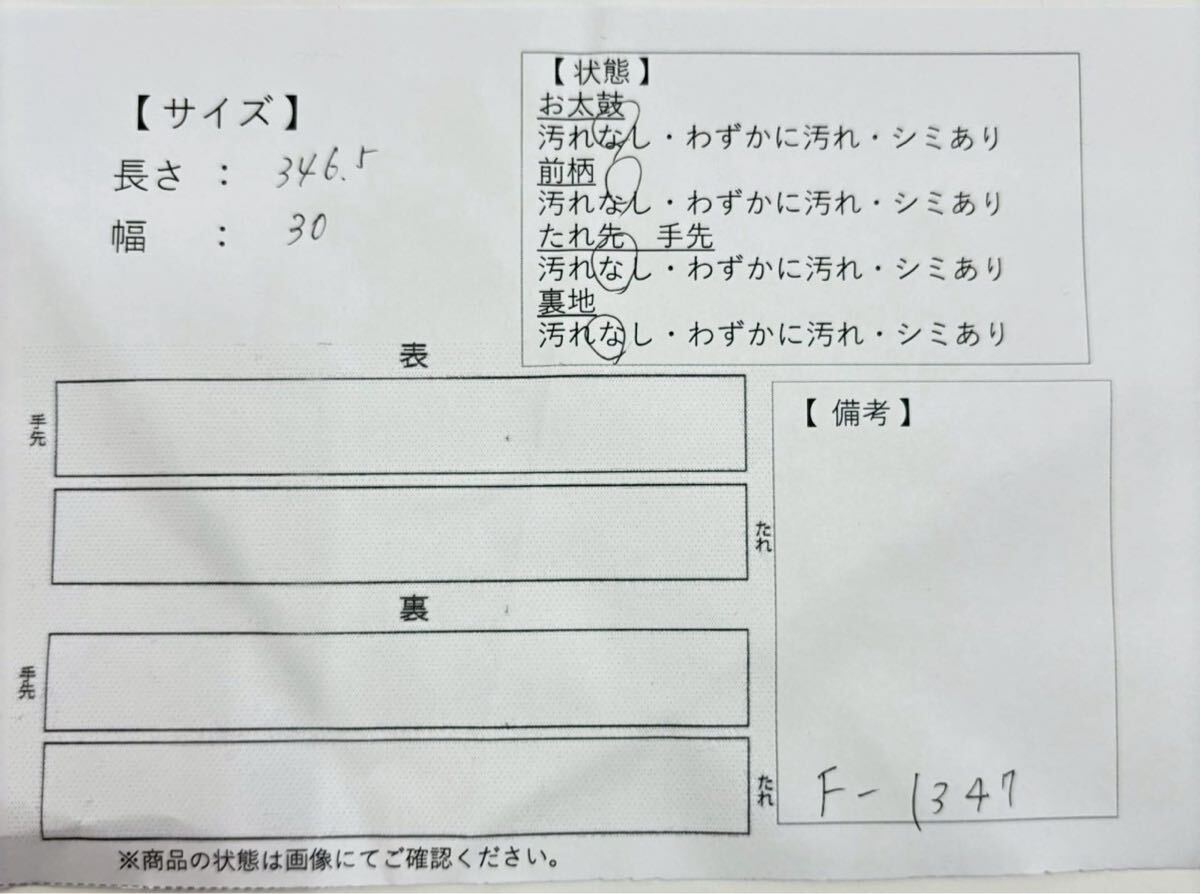 【 サイズ 】
長さ : 346.5
幅 : 30
【 状態 】
お太鼓
汚れなし・わずかに汚れ・シミあり
前柄
汚れなし・わずかに汚れ・シミあり
たれ先 手先
汚れなし・わずかに汚れ・シミあり
裏地
汚れなし・わずかに汚れ・シミあり
表
手先
たれ
裏
手先
たれ
【 備考 】
F-1347
※商品の状態は画像にてご確認ください。